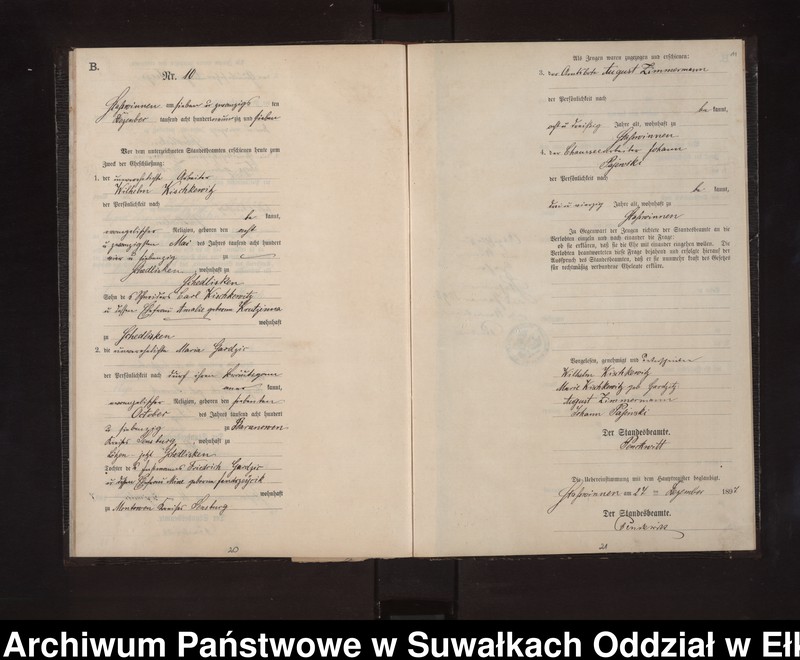 B.
Nr. 10
am sieben u zwanzigsten
Dezember tausend acht hundert neunzig und sieben
Vor dem unterzeichneten Standesbeamten erschienen heute zum
Zweck der Eheschließung:
1. der unverehelichte Arbeiter
Wilhelm Kischkewitz
der Persönlichkeit nach
be kannt,
evangelischer Religion, geboren den acht
u zwanzigsten Mai des Jahres tausend acht hundert
vier u siebenzig zu
Schedlisken, wohnhaft zu
Schedlisken
Sohn des Carl Kischkewitz
u dessen Ehefrau Amalie geborene
wohnhaft
zu Schedlisken
2. die unverehelichte Maria Gardzir
der Persönlichkeit nach durch ihren Bräutigam
kannt,
evangelischer Religion, geboren den siebenten
October des Jahres tausend acht hundert
u siebenzig zu Baranowen
Kreises Sensburg, wohnhaft zu
jetzt Schedlisken
Tochter des Friedrich Gardzir
u dessen Ehefrau geborene
wohnhaft
zu Kreises Sensburg
20
Als Zeugen waren zugezogen und erschienen:
3. der Amtsbote August Zimmermann
der Persönlichkeit nach
be kannt,
acht u dreißig Jahre alt, wohnhaft zu
4. der Chausseearbeiter Johann
der Persönlichkeit nach
be kannt,
Jahre alt, wohnhaft zu
In Gegenwart der Zeugen richtete der Standesbeamte an die
Verlobten einzeln und nach einander die Frage:
ob sie erklären, daß sie die Ehe mit einander eingehen wollen. Die
Verlobten beantworteten diese Frage bejahend und erfolgte hierauf der
Ausspruch des Standesbeamten, daß er sie nunmehr kraft des Gesetzes
für rechtmäßig verbundene Eheleute erkläre.
Vorgelesen, genehmigt und unterschrieben
Wilhelm Kischkewitz
Marie Kischkewitz geb
August Zimmermann
Johann
Der Standesbeamte.
Die Uebereinstimmung mit dem Hauptregister beglaubigt.
am 27 ten Dezember 1897
Der Standesbeamte.
21
Archiwum Państwowe w Suwałkach Oddział w Ełk